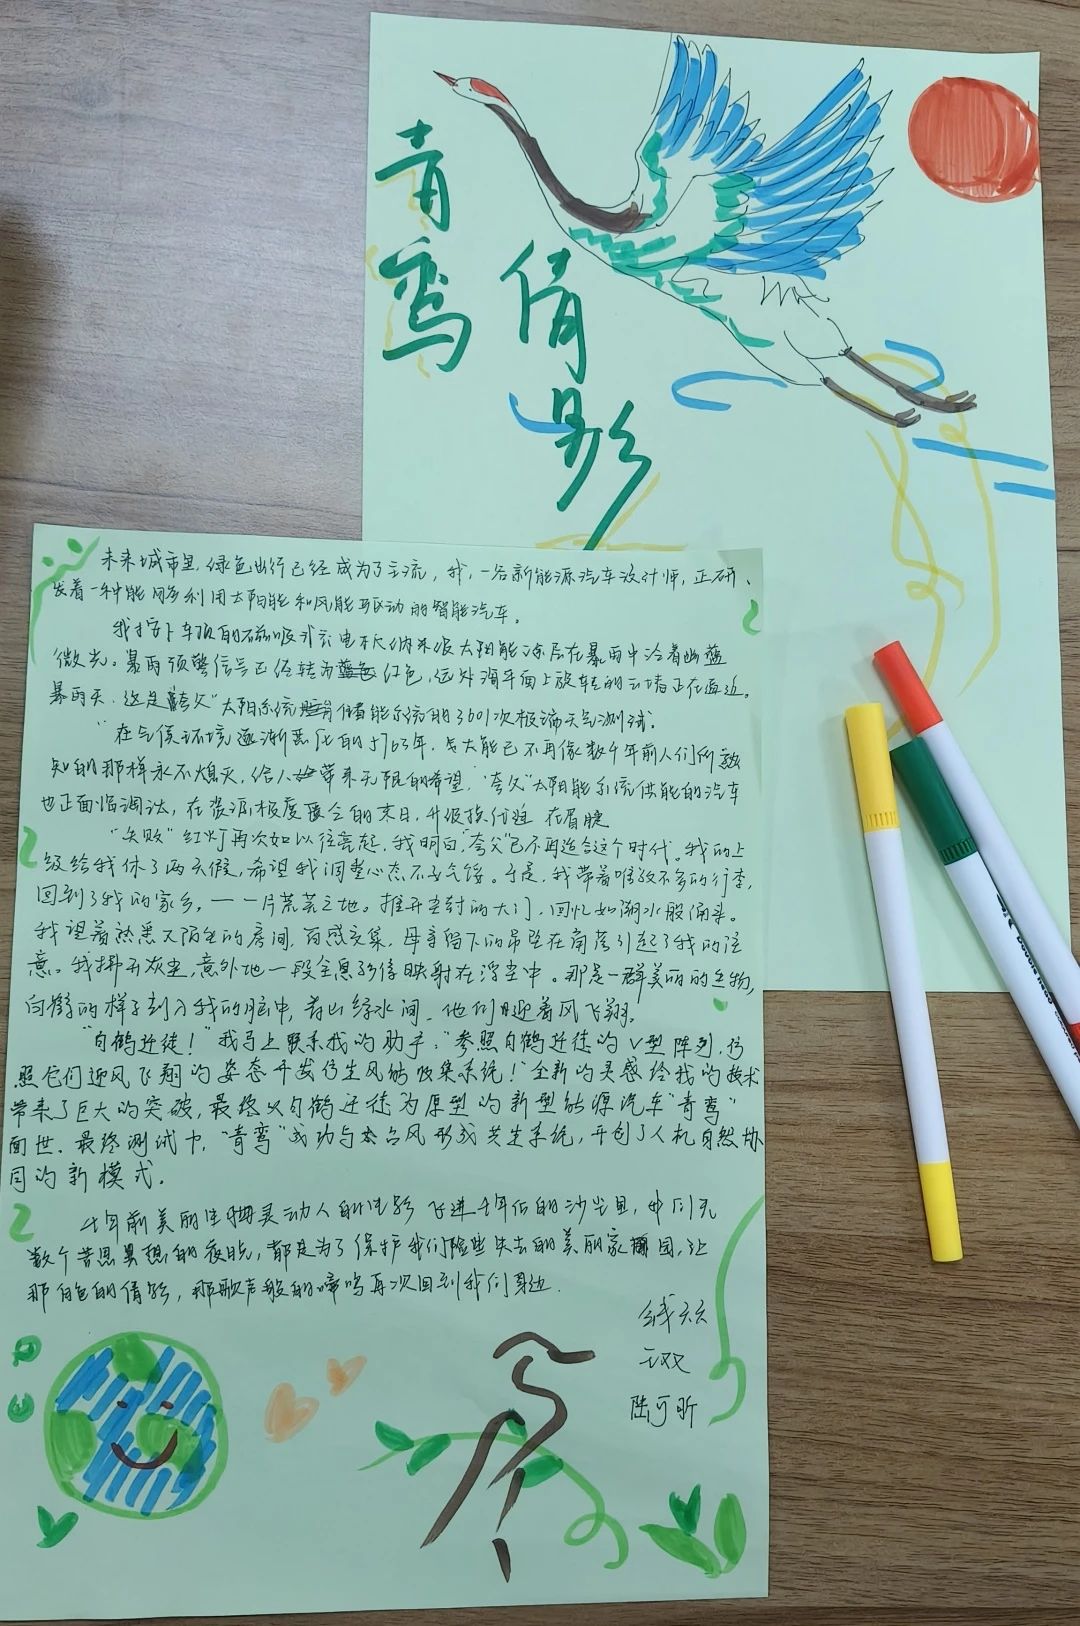 青鸾
倩影
未来城市里,绿色出行已经成为了主流,我,一名新能源汽车设计师,正研
发着一种能够利用太阳能和风能驱动的智能汽车。
我按下车顶的磁吸式充电板,纳米级太阳能涂层在暴雨中泛着幽蓝
微光。暴雨预警信号已经转为红色,远处海平面上旋转的云墙正在逼近。
暴雨天,这是"夸父"太阳系统储能系统的3601次极端天气测试。
在气候环境逐渐恶化的5763年,太能已不再像数千年前人们所熟
知的那样永不熄灭,给人带来无限的希望,"夸父"太阳能系统供能的汽车
也正面临淘汰,在资源极度匮乏的末日,升级换代迫在眉睫
"失败"红灯再次如以往亮起,我明白"夸父"已不再适合这个时代。我的上
级给我休了两天假,希望我调整心态不要气馁。于是,我带着唯数不多的行李,
回到了我的家乡,一一片荒芜之地。推开尘封的大门,回忆如潮水般涌来。
我望着熟悉又陌生的房间,百感交集,母亲留下的吊坠在角落引起了我的注
意。我拂开灰尘,意外地一段全息影像映射在浮尘中。那是一群美丽的生物,
白鹤的样子刻入我的脑中,青山绿水间,他们迎着风飞翔。
"白鹤迁徙!"我马上联系我的助手:"参照白鹤迁徙的V型阵列,仿
照它们迎风飞翔的姿态开发仿生风能收集系统!"全新的灵感给我的技术
带来了巨大的突破,最终以白鹤迁徙为原型的新型能源汽车"青鸾"
面世。最终测试中,"青鸾"成功与台风形成共生系统,开创了人机自然协
同的新模式。
千年前美丽生物灵动人的倩影飞进千年后的沙尘里,他们无
数个苦思冥想的夜晚,都是为了保护我们险些失去的美丽家园,让
那白色的倩影,那歌声般的啼鸣再次回到我们身边.
陆可昕